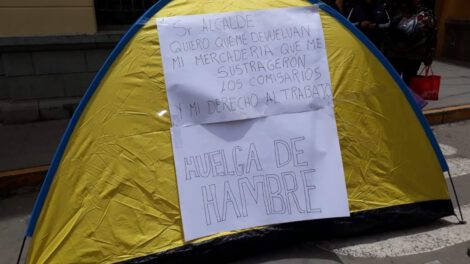 Sr ALCALDE
QUIERO QUE ME DEVUELVAN
MI MERCADERIA QUE ME
SUSTRAGERON
LOS COMISARIOS
Y MI DERECHO AL TRABAJO
HUELGA DE
HAMBRE